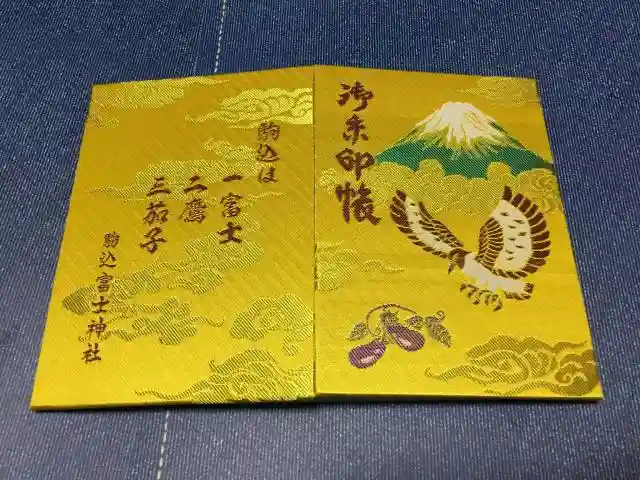 御朱印帳
駒込は
一富士
二鷹
三茄子
駒込富士神社